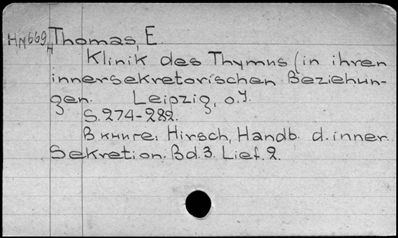 HM669 Thomas, E.
H
Klinik des Thymus (in ihren
innersekretorischen Beziehun-
gen. Leipzig, o.J.
S. 274-282.
В книге: Hirsch, Handb. d. inner
Sekretion. Bd. 3. Lief. 2.